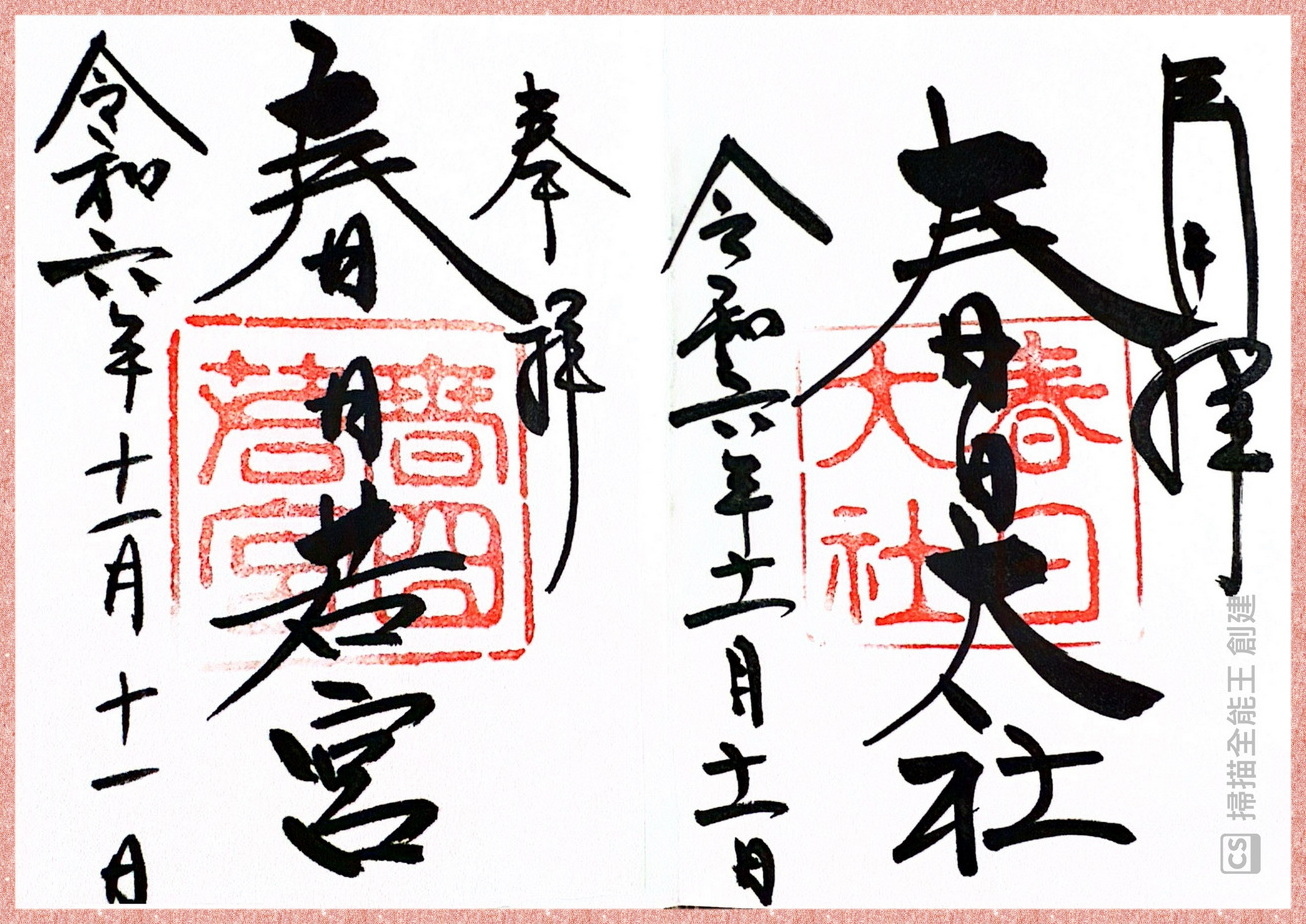 春日大社
春日大社
令和六年十一月十一日
奉拝
春日若宮
春日若宮
令和六年十一月十一日
CS 掃描全能王 創建